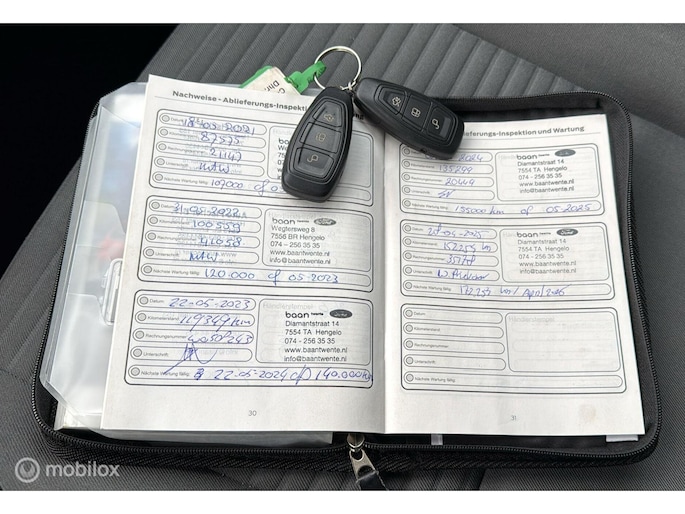 Nachweise - Ablieferungs-Inspektion
Datum: 18-05-2021
Kilometerstand: 87575
Rechnungsnummer
Unterschrift:
Nächste Wartung fällig: 107000
baan twente Ford
Datum:
Kilometerstand: 100559
Rechnungsnummer: 41058
Unterschrift:
Nächste Wartung fällig: 120.000 of 05-2023
baan twente Ford
Wegtersweg 8
7556 BR Hengelo
074 - 256 35 35
www.baantwente.nl
info@baantwente.nl
Datum: 22-05-2023
Kilometerstand: 119349 km
Rechnungsnummer: 4050243
Unterschrift:
Nächste Wartung fällig: 22-05-2024 of 140.000
baan twente Ford
Diamantstraat 14
7554 TA Hengelo
074 - 256 35 35
www.baantwente.nl
info@baantwente.nl
30
lieferungs-Inspektion und Wartung
2024
135299
20449
Unterschrift:
Nächste Wartung fällig: 155000 km of 05-2025
baan twente
Diamantstraat 14
7554 TA Hengelo
074 - 256 35 35
www.baantwente.nl
info@baantwente.nl
Datum:
Kilometerstand: 152255 km
Rechnungsnummer:
Unterschrift:
Nächste Wartung fällig: 172.255 km / April 2026
baan twente Ford
Diamantstraat 14
7554 TA Hengelo
074 - 256 35 35
www.baantwente.nl
info@baantwente.nl
Datum:
Kilometerstand:
Rechnungsnummer:
Unterschrift:
Nächste Wartung fällig:
31
mobilox